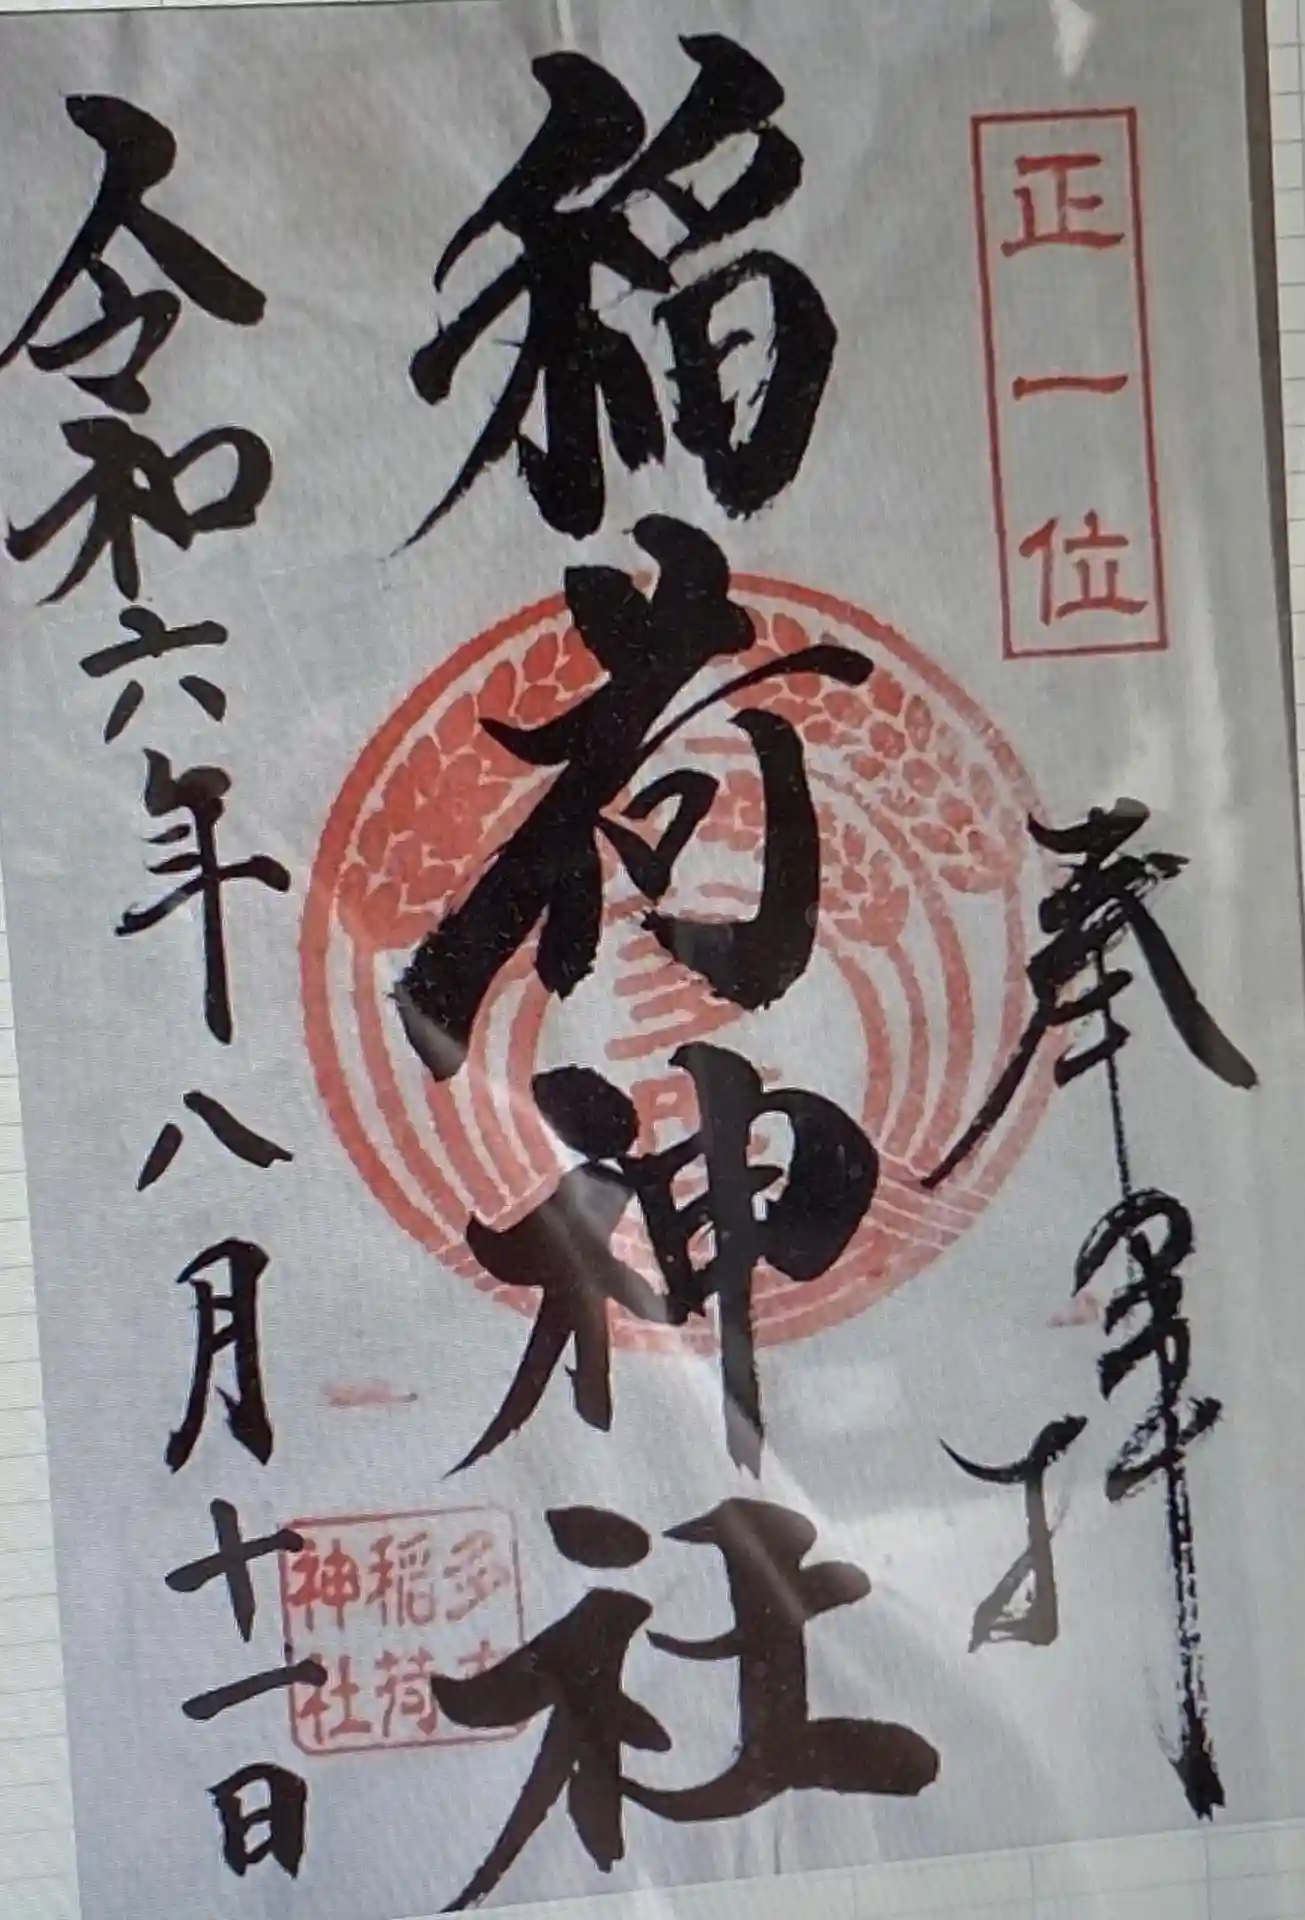 正一位
奉拝
稲荷神社
令和六年八月十一日
稲荷
神社